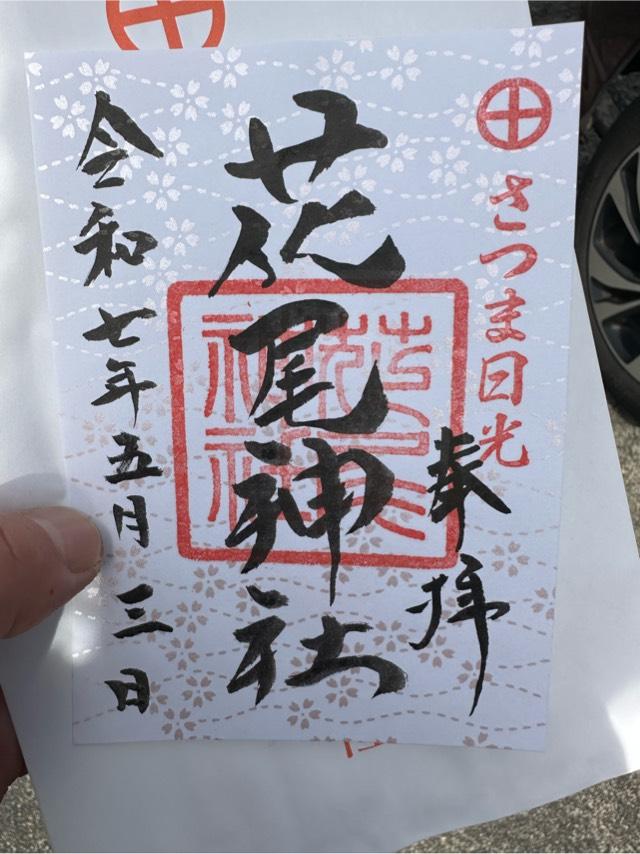 さつま日光
奉拝
花尾神社
令和七年五月三日